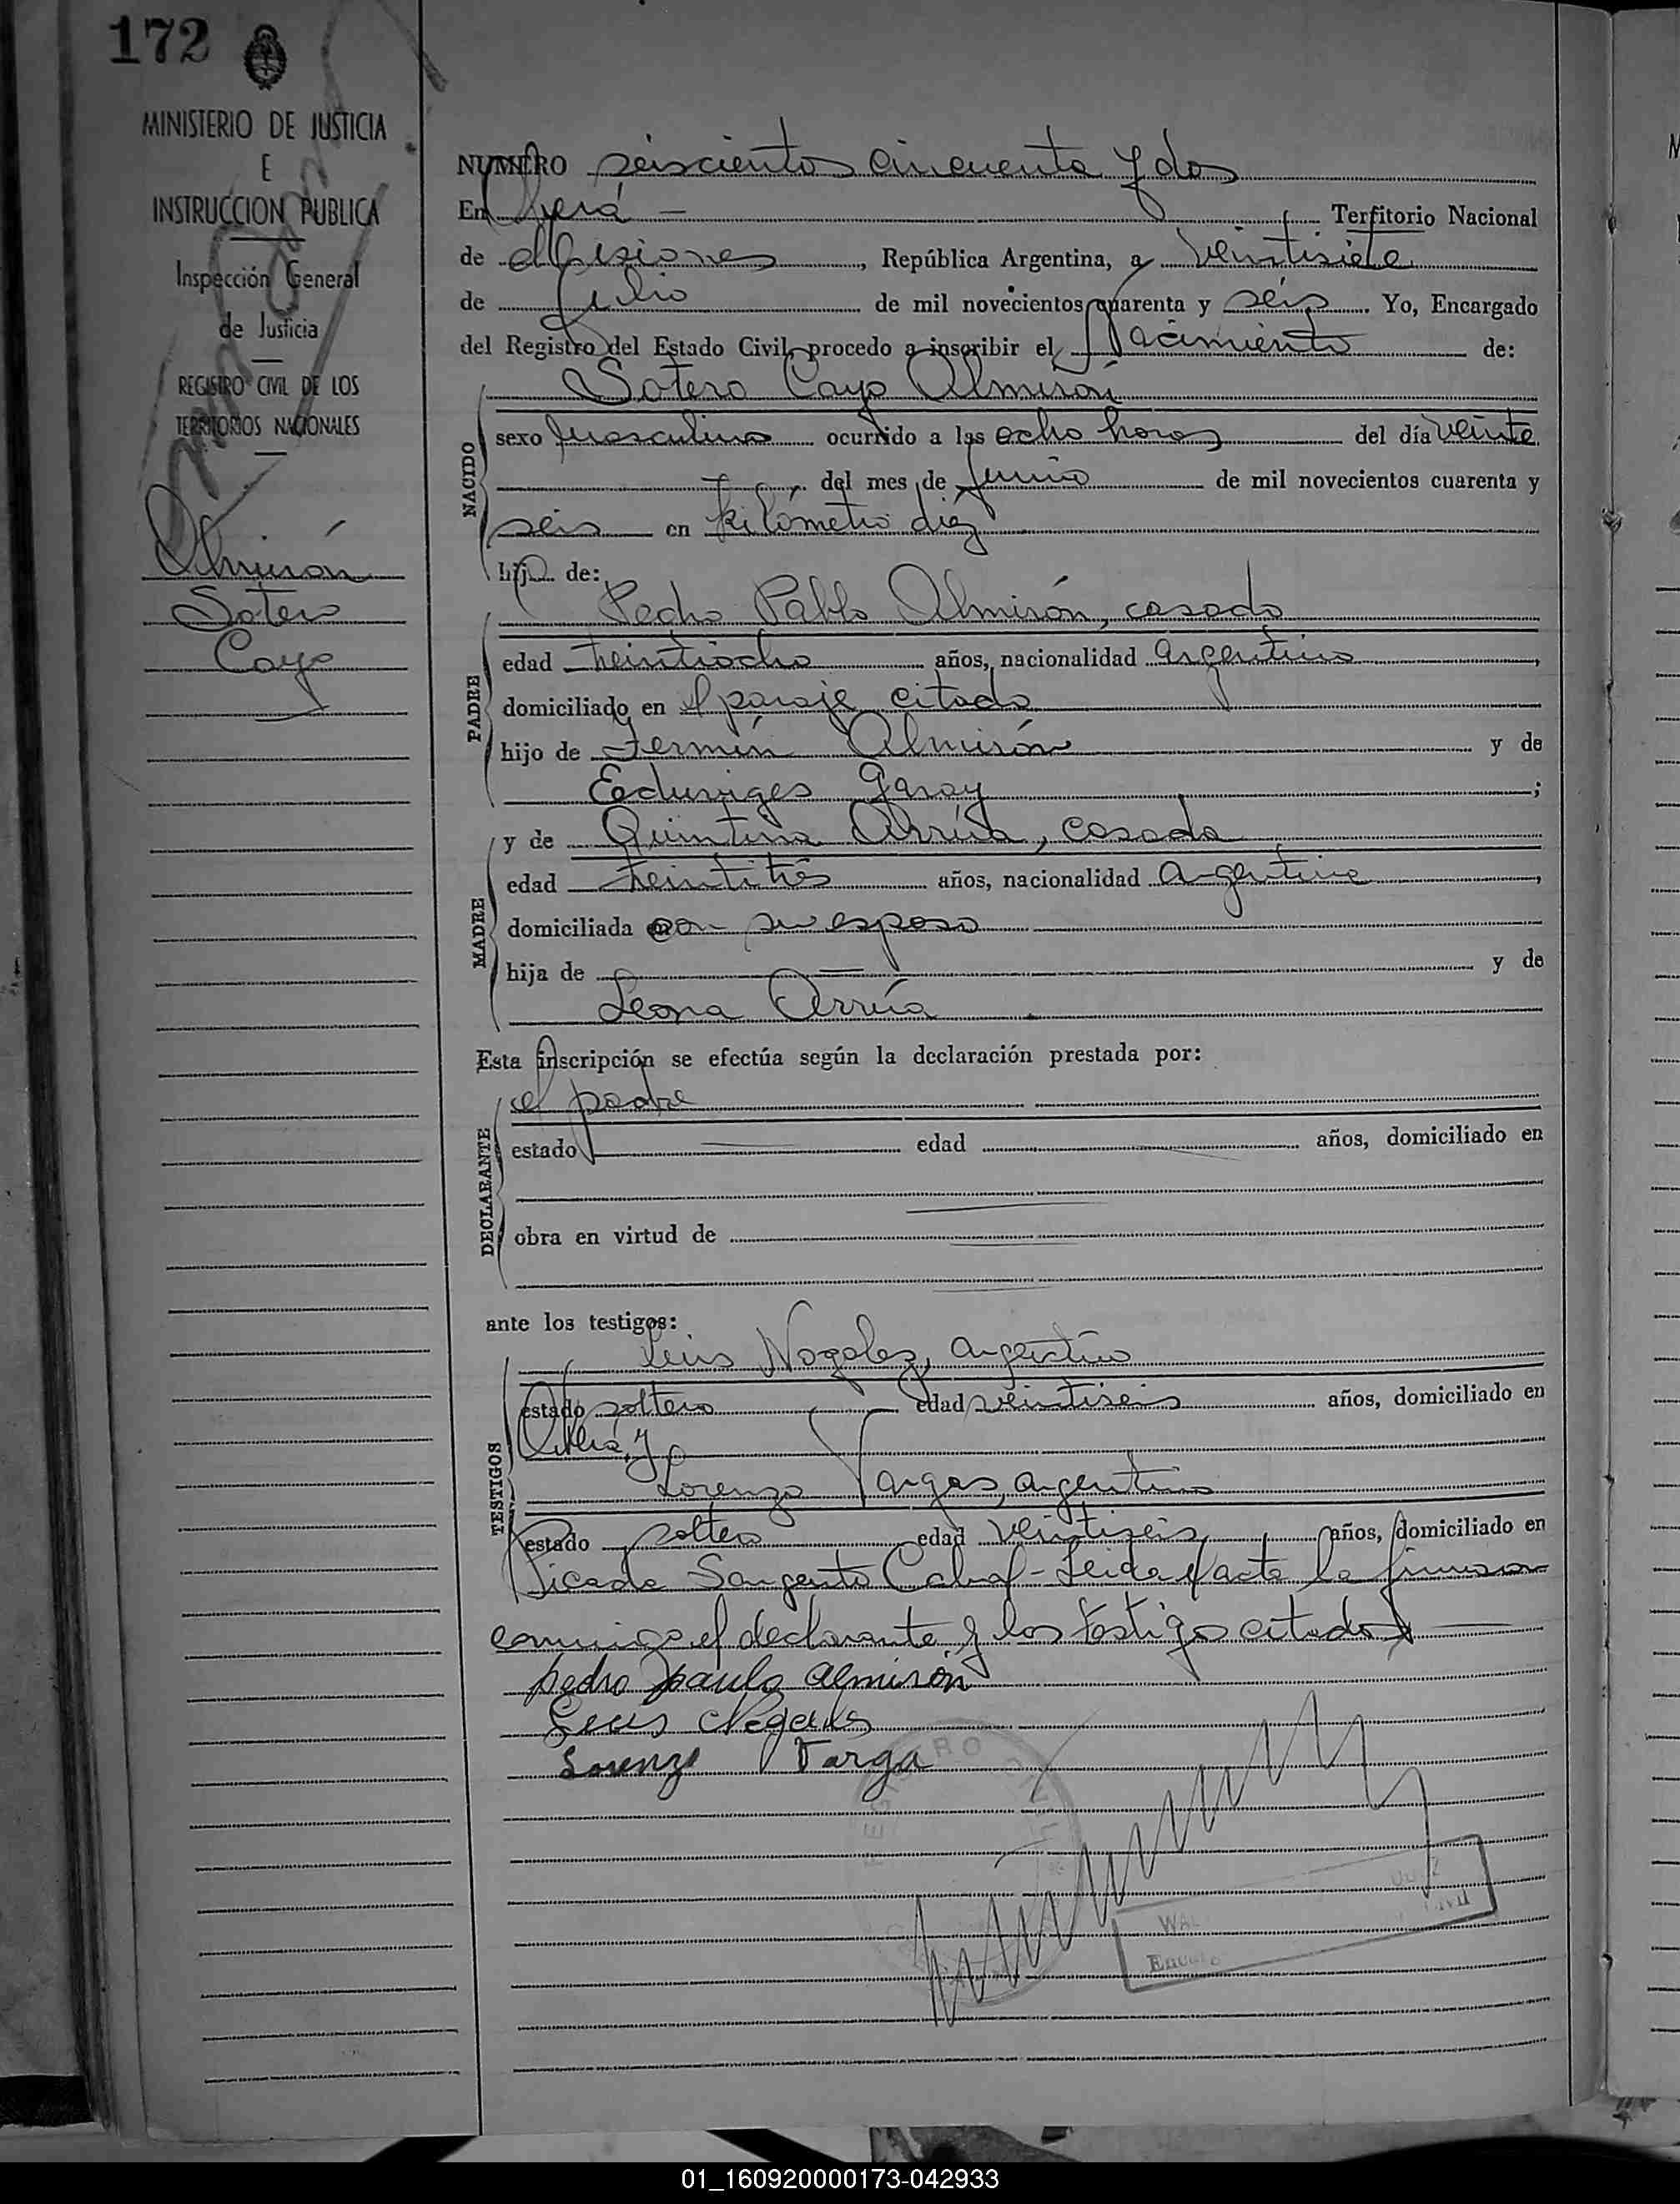 172
MINISTERIO DE JUSTICIA
E
INSTRUCCION PUBLICA
Inspección General
de Justicia
REGISTRO CIVIL DE LOS
TERRITORIOS NACIONALES
Almirón
Sotero
Cayo
NUMERO seiscientos cincuenta y dos
En Oberá - Territorio Nacional
de Misiones, República Argentina, a veintisiete
de Julio de mil novecientos cuarenta y seis. Yo, Encargado
del Registro del Estado Civil, procedo a inscribir el Nacimiento de:
Sotero Cayo Almirón
NACIDO
sexo masculino ocurrido a las ocho horas del día veinte
del mes de Junio de mil novecientos cuarenta y
seis en kilómetro diez
hijo de:
Pedro Pablo Almirón, casado
PADRE
edad treintiocho años, nacionalidad argentino,
domiciliado en el paraje citado
hijo de Fermín Almirón y de
Eduviges Garay;
y de Quintina Arrúa, casada
MADRE
edad treintitrés años, nacionalidad argentina,
domiciliada con su esposo
hija de y de
Leona Arrúa
Esta inscripción se efectúa según la declaración prestada por:
el padre
DECLARANTE
estado edad años, domiciliado en
obra en virtud de
ante los testigos:
Luis Nogales, argentino
TESTIGOS
estado soltero edad veintiseis años, domiciliado en
Oberá, y
Lorenzo Vargas, argentino
estado soltero edad veintiseis años, domiciliado en
Picada Sargento Cabral - Leida el acta la firmaron
conmigo el declarante y los testigos citados
pedro paulo almirón
Luis Nogales
Lorenzo Varga
01_160920000173-042933